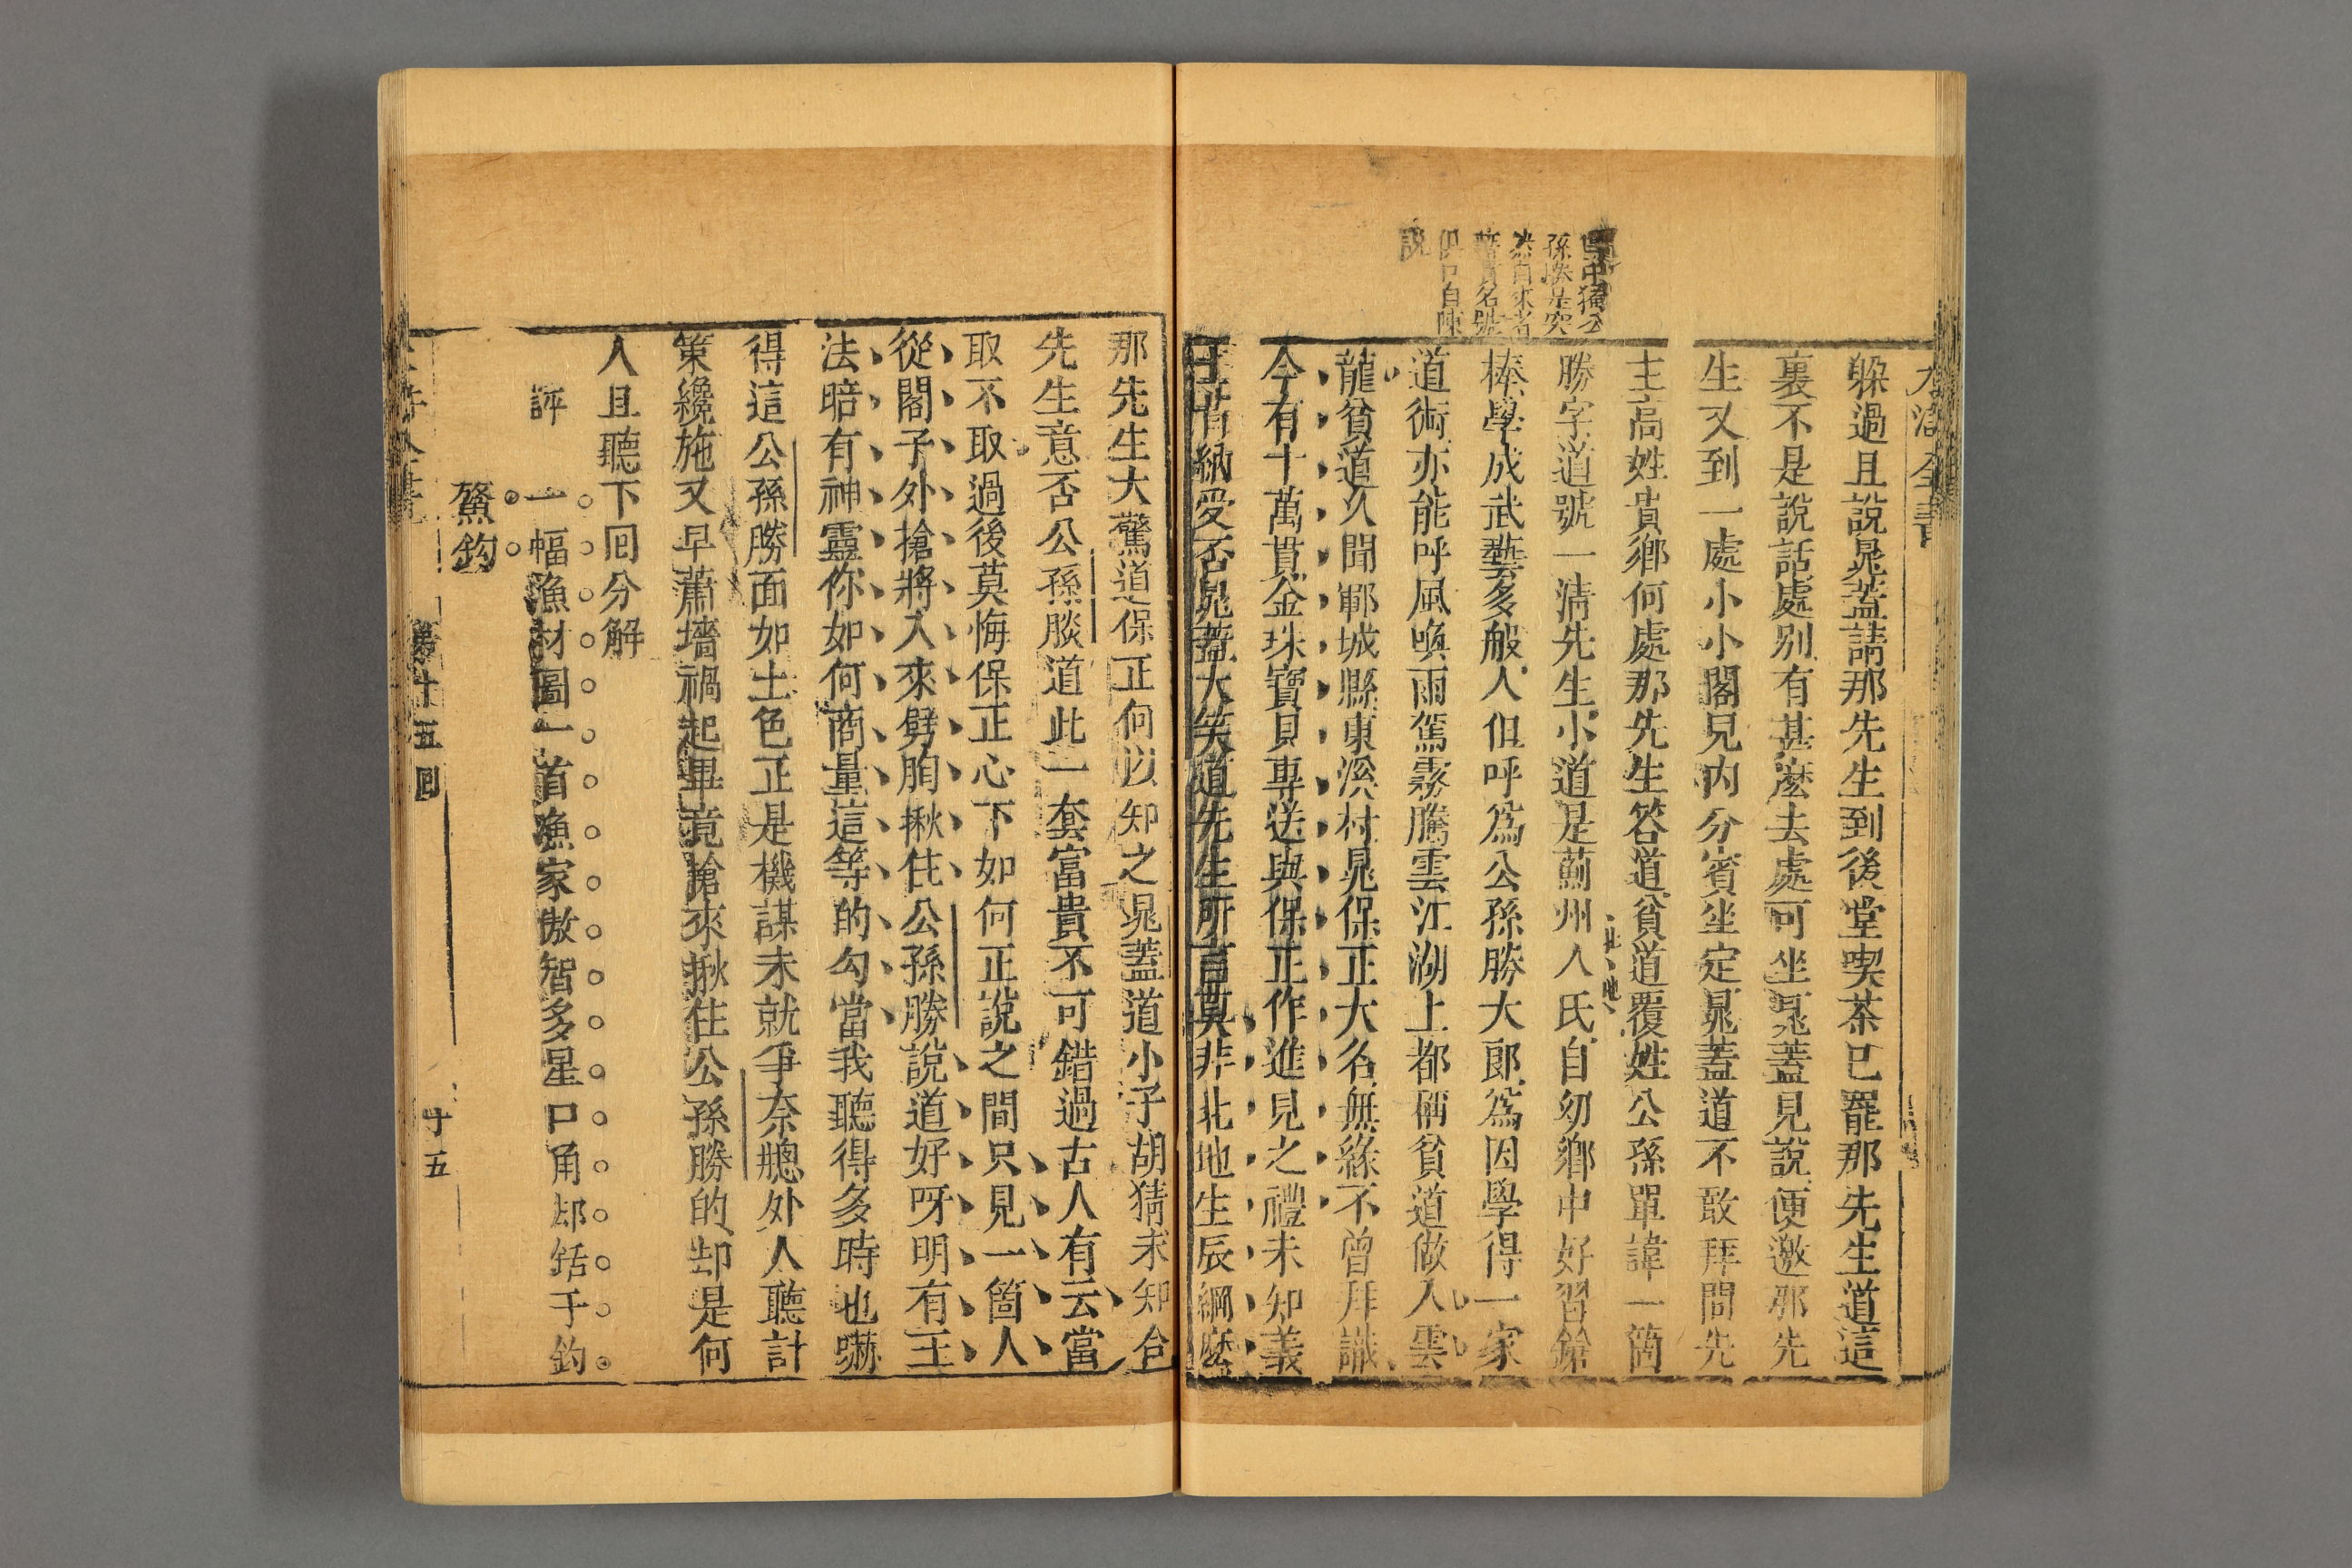 全書
吳中獨公
孫勝是突
然自來者
名號
俱口自陳
說
躲過且說晁蓋請那先生到後堂喫茶已罷那先生道這
裏不是說話處别有甚麽去處可坐晁蓋見說便邀那先
生又到一處小小閣兒内分賓坐定晁蓋道不敢拜問先
主高姓貴鄉何處那先生答道貧道覆姓公孫單諱一箇
勝字道號一淸先生小道是薊州人氏自幼鄉中好習鎗
棒學成武藝多般人但呼爲公孫勝大郎爲因學得一家
道術亦能呼風喚雨駕霧騰雲江湖上都稱貧道做入雲
龍貧道久聞鄆城縣東溪村晁保正大名無緣不曾拜識
今有十萬貫金珠寶貝專送與保正作進見之禮未知義
士肯納受否晁蓋大笑道先生所言莫非北地生辰綱麽
那先生大驚道保正何以知之晁蓋道小子胡猜未知合
先生意否公孫勝道此一套富貴不可錯過古人有云當
取不取過後莫悔保正心下如何正說之間只見一箇人
從閣子外搶將入來劈胷揪住公孫勝說道好呀明有王
法暗有神靈你如何商量這等的勾當我聽得多時也嚇
得這公孫勝面如土色正是機謀未就爭奈牕外人聽計
策纔施又早蕭墻禍起畢竟搶來揪住公孫勝的却是何
人且聽下囘分解
評
一幅漁村圖一首漁家傲智多星口角却餂千鈞
鰲鈎
第十五囘
十五